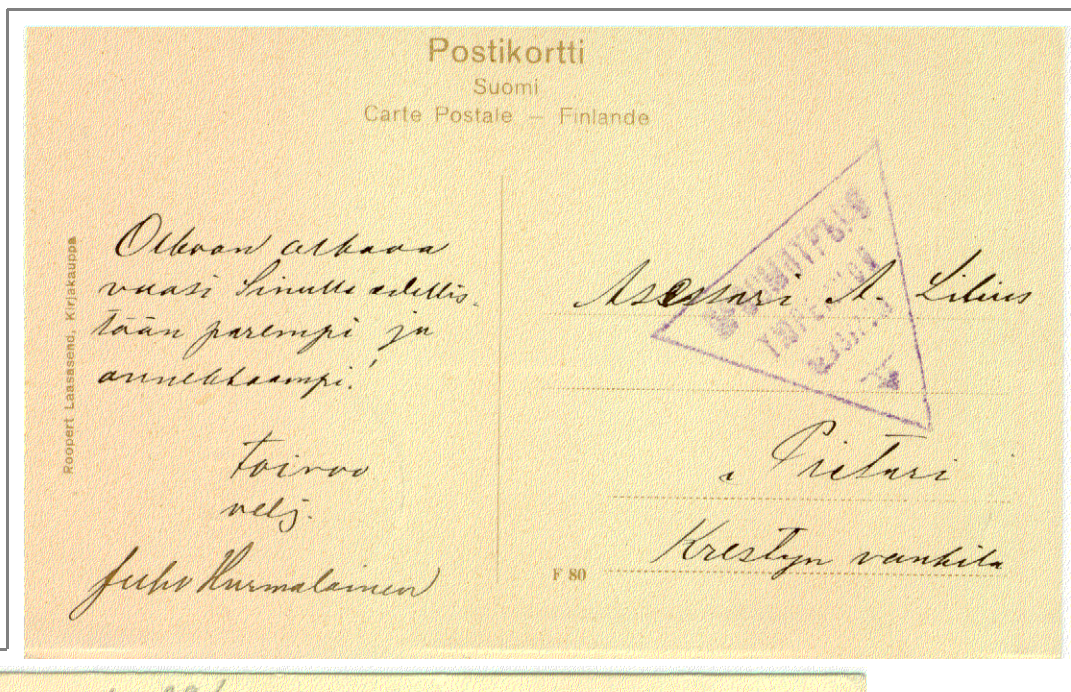 Postikortti
Suomi
Carte Postale — Finlande
Roopert Laasasend. Kirjakauppa
Olkoon alkava
vuosi Sinulle edellis-
tään parempi ja
onnekkaampi!
toivoo
velj.
Juho Hurmalainen
Asessori A. Lilius
Pietari
Krestyn vankila
F 80